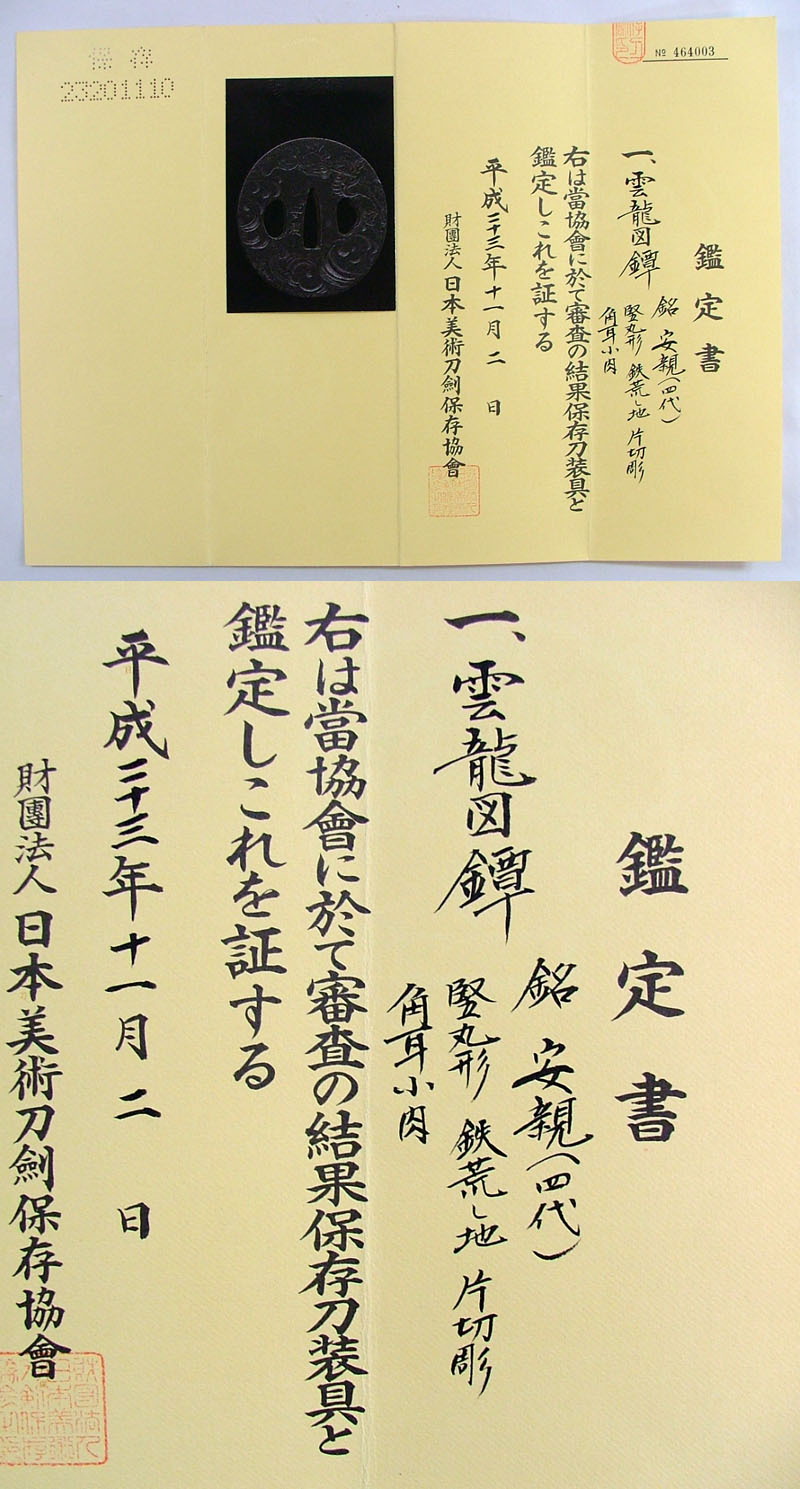 保存
23201110
№ 464003
鑑定書
一、雲龍図鐔
銘 安親(四代)
竪丸形 鉄荒し地 片切彫
角耳小肉
右は當協會に於て審査の結果保存刀装具と
鑑定しこれを証する
平成二十三年十一月二日
財團法人日本美術刀劍保存協會
鑑定書
一、雲龍図鐔
銘 安親(四代)
竪丸形 鉄荒し地 片切彫
角耳小肉
右は當協會に於て審査の結果保存刀装具と
鑑定しこれを証する
平成二十三年十一月二日
財團法人日本美術刀劍保存協會